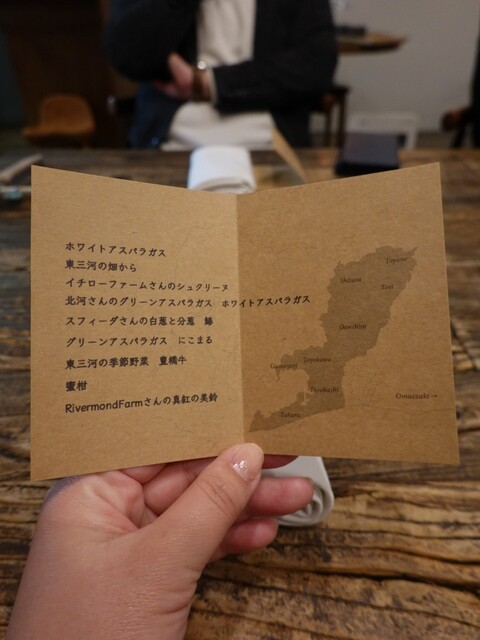 ホワイトアスパラガス
東三河の畑から
イチローファームさんのシュクリーヌ
北河さんのグリーンアスパラガス ホワイトアスパラガス
スフィーダさんの白葱と分葱 鰆
グリーンアスパラガス にこまる
東三河の季節野菜 豊橋牛
蜜柑
RivermondFarmさんの真紅の美鈴
Toyone
Shitara
Toei
Shinshiro
Toyokawa
Gamagori
Toyohashi
Tahara
Omaezaki→